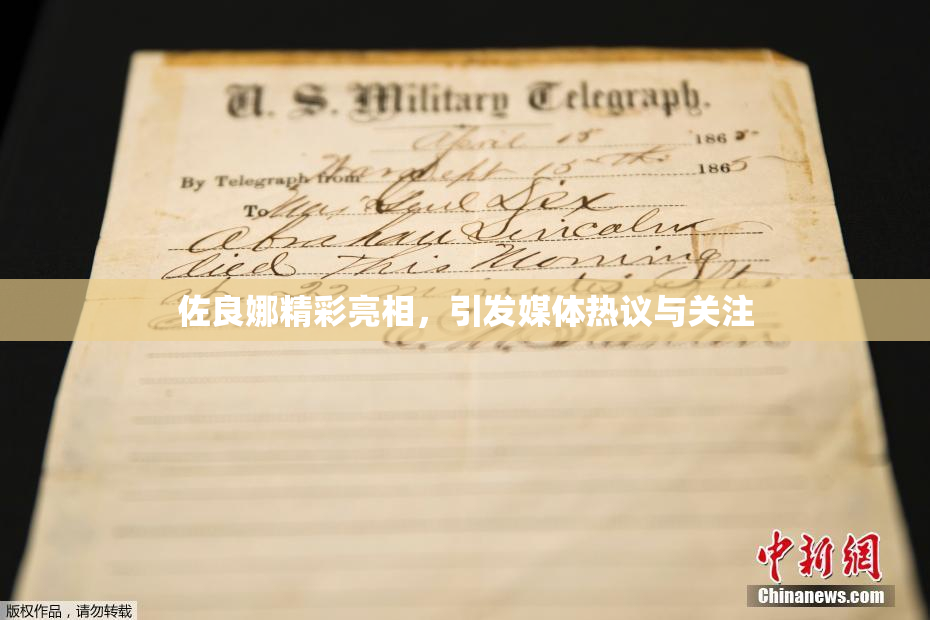 U. S. Military Telegraph.
April 15 1865.
By Telegraph from War Dept 15th 1865
To Maj Genl Dix
Abraham Lincoln
died This Morning
at 22 minutes after
佐良娜精彩亮相，引发媒体热议与关注
E. M. Stanton
中新网
Chinanews.com
版权作品，请勿转载